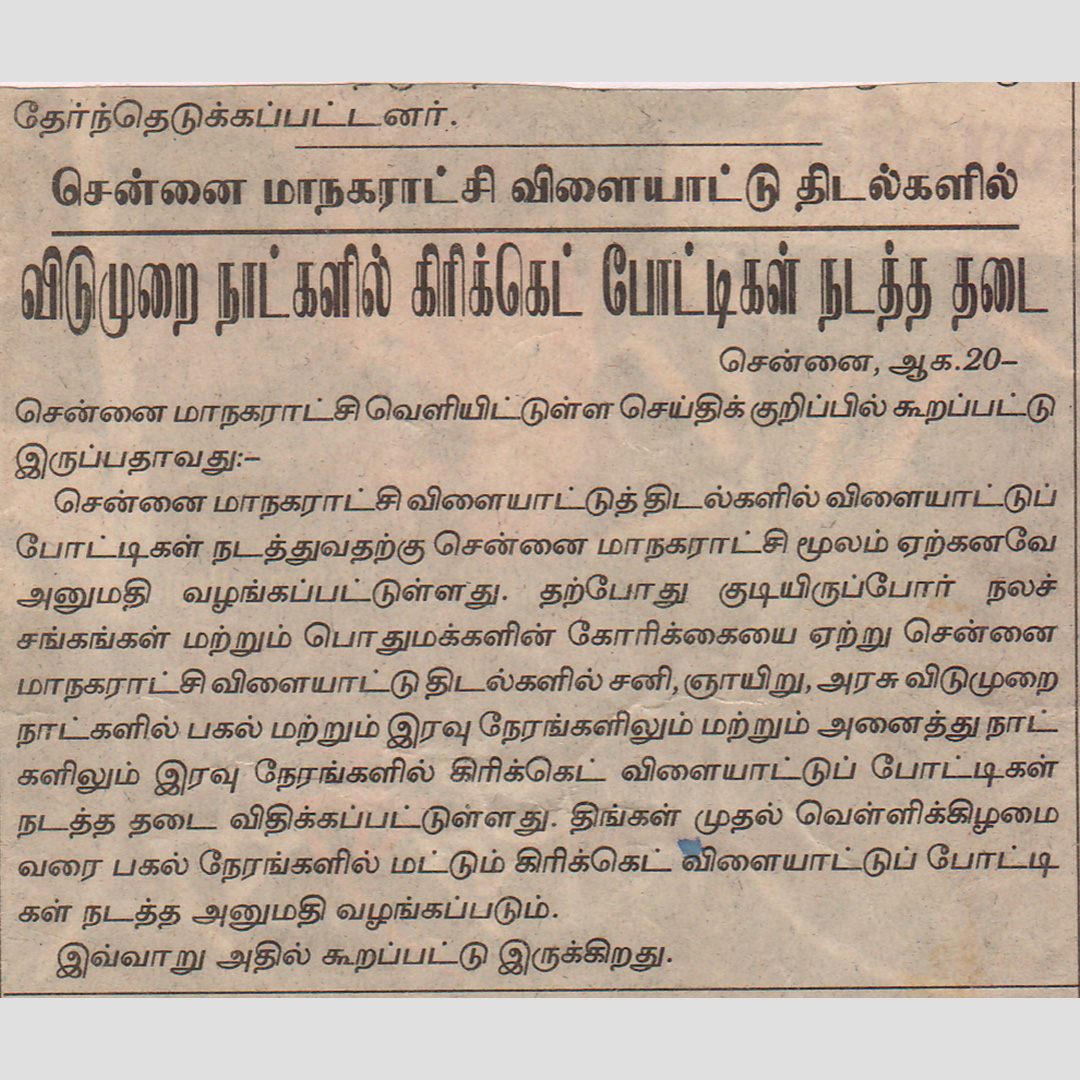 தேர்ந்தெடுக்கப்பட்டனர்.
சென்னை மாநகராட்சி விளையாட்டு திடல்களில்
விடுமுறை நாட்களில் கிரிக்கெட் போட்டிகள் நடத்த தடை
சென்னை, ஆக.20–
சென்னை மாநகராட்சி வெளியிட்டுள்ள செய்திக் குறிப்பில் கூறப்பட்டு
இருப்பதாவது:–
சென்னை மாநகராட்சி விளையாட்டுத் திடல்களில் விளையாட்டுப்
போட்டிகள் நடத்துவதற்கு சென்னை மாநகராட்சி மூலம் ஏற்கனவே
அனுமதி வழங்கப்பட்டுள்ளது. தற்போது குடியிருப்போர் நலச்
சங்கங்கள் மற்றும் பொதுமக்களின் கோரிக்கையை ஏற்று சென்னை
மாநகராட்சி விளையாட்டு திடல்களில் சனி, ஞாயிறு, அரசு விடுமுறை
நாட்களில் பகல் மற்றும் இரவு நேரங்களிலும் மற்றும் அனைத்து நாட்
களிலும் இரவு நேரங்களில் கிரிக்கெட் விளையாட்டுப் போட்டிகள்
நடத்த தடை விதிக்கப்பட்டுள்ளது. திங்கள் முதல் வெள்ளிக்கிழமை
வரை பகல் நேரங்களில் மட்டும் கிரிக்கெட் விளையாட்டுப் போட்டி
கள் நடத்த அனுமதி வழங்கப்படும்.
இவ்வாறு அதில் கூறப்பட்டு இருக்கிறது.